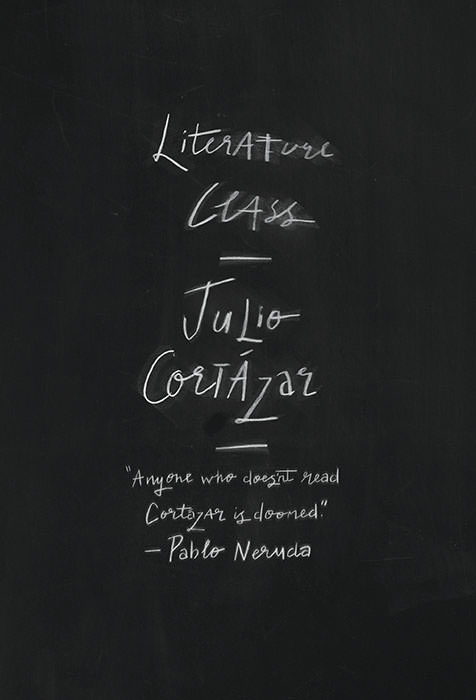 Literature
Class
Julio
Cortázar
"Anyone who doesn't read
Cortazar is doomed."
— Pablo Neruda